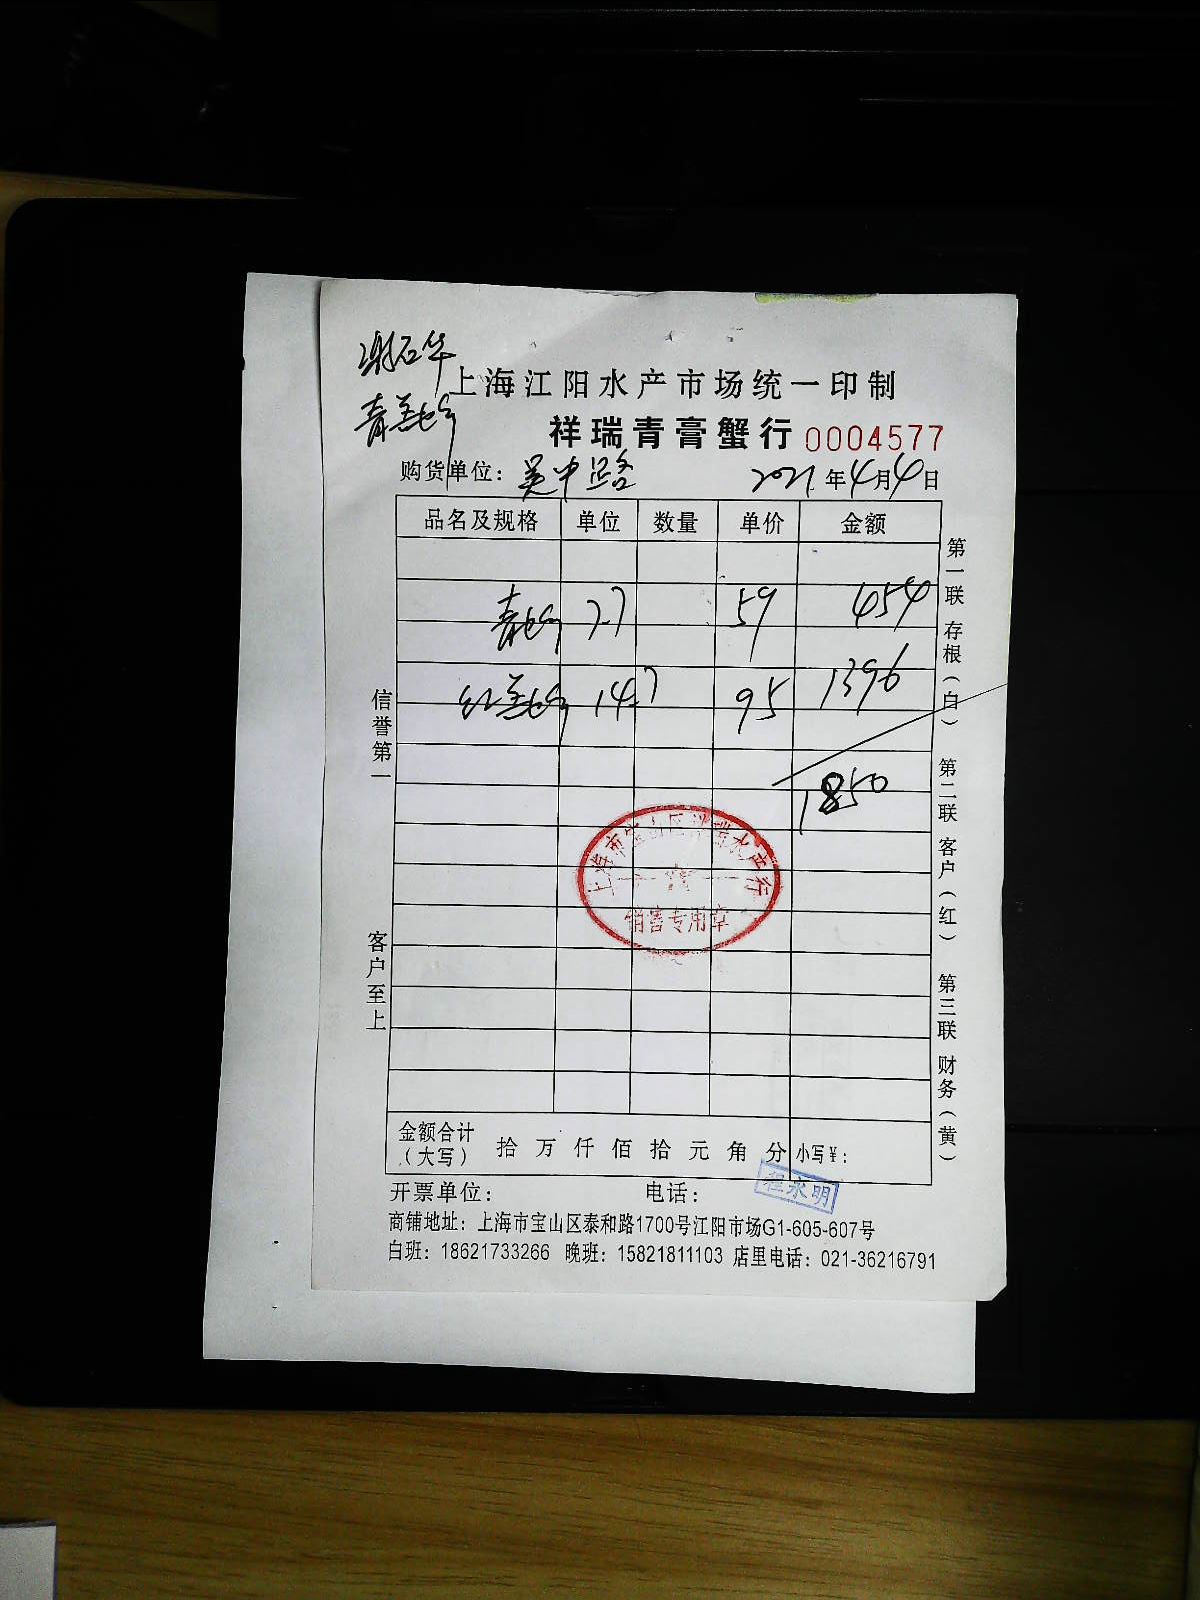 谢石华
上海江阳水产市场统一印制
青羔蟹
祥瑞青膏蟹行 0004577
购货单位：吴中路 2021年4月4日
品名及规格 单位 数量 单价 金额
青蟹 7.7 59 454
红羔蟹 14.7 95 1396
1850
上海市宝山区祥瑞水产行
销售专用章
信誉第一
客户至上
第一联 存根（白） 第二联 客户（红） 第三联 财务（黄）
金额合计
（大写） 拾 万 仟 佰 拾 元 角 分 小写¥：
程永明
开票单位： 电话：
商铺地址：上海市宝山区泰和路1700号江阳市场G1-605-607号
白班：18621733266 晚班：15821811103 店里电话：021-36216791